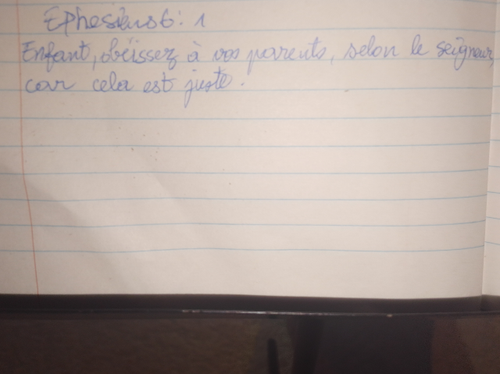 Ephesiens 6: 1
Enfant, obéissez à vos parents, selon le seigneur,
car cela est juste.